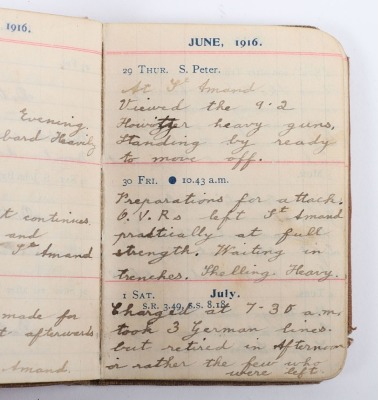 1916.
Evening
bard Heavily
t continues.
and
St Amand
made for
t afterwards
Amand.
JUNE, 1916.
29 THUR. S. Peter.
At St Amand
Viewed the 9.2
Howitzer heavy guns.
Standing by ready
to move off.
30 FRI. ● 10.43 a.m.
Preparations for attack.
Q.V.Rs left St Amand
practically at full
strength. Waiting in
trenches. Shelling Heavy.
1 SAT. July.
S.R. 3.49, S.S. 8.18.
Charged at 7-30 a.m.
took 3 German lines.
but retired in Afternoon
or rather the few who
were left.